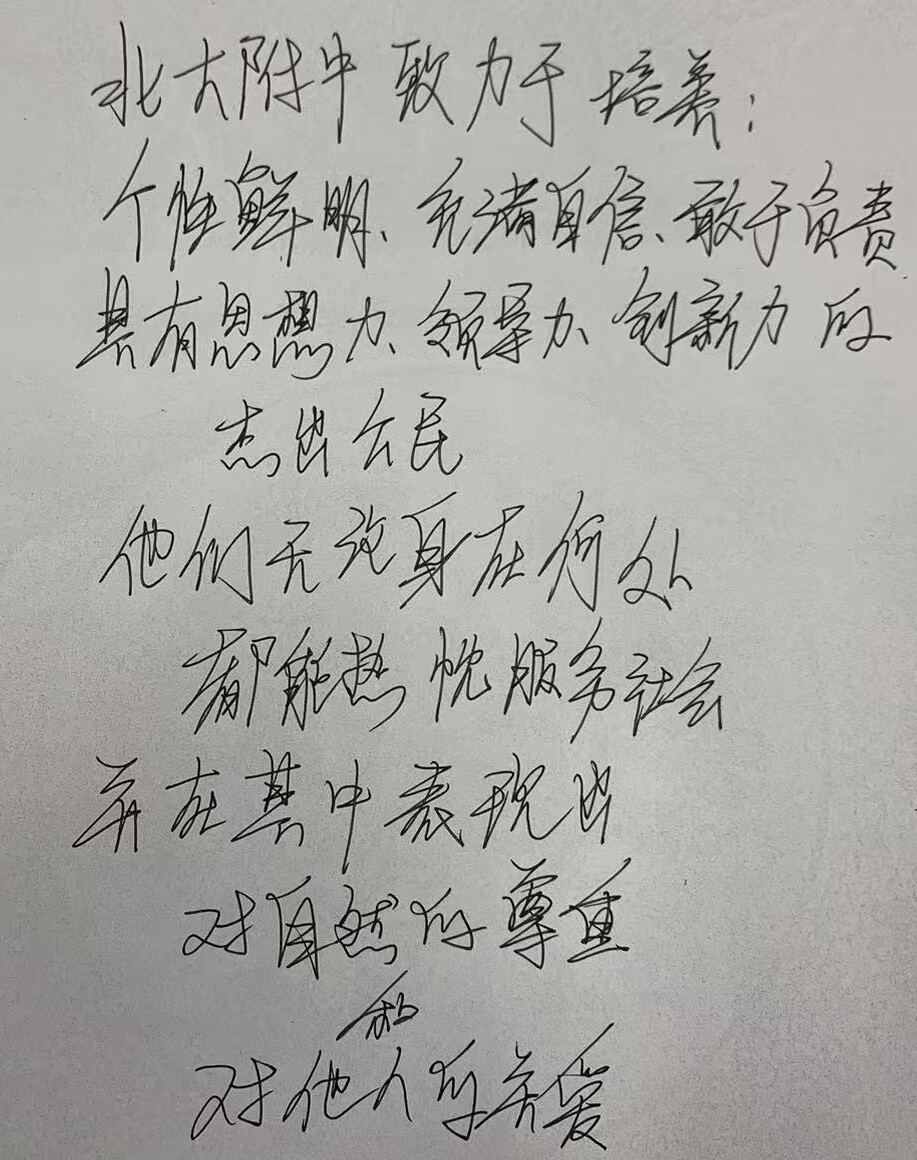 北大附中致力于培养：
个性鲜明、充满自信、敢于负责
具有思想力、领导力、创新力的
杰出公民
他们无论身在何处
都能热忱服务社会
并在其中表现出
对自然的尊重
和
对他人的关爱